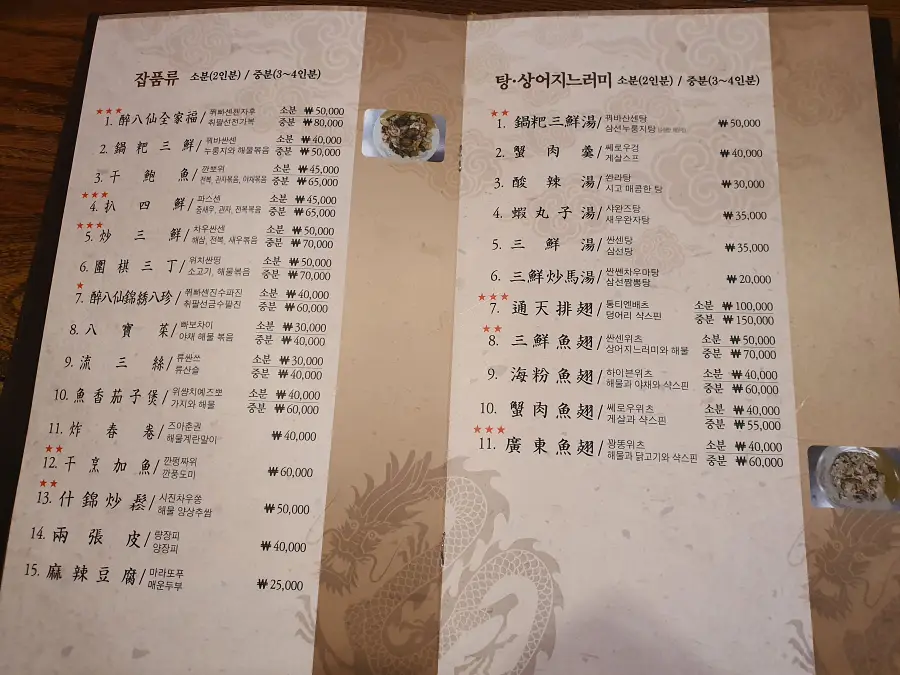 잡품류 소분(2인분) / 중분(3~4인분)
★★★
1. 醉八仙全家福/쮜빠쎈췐쟈후 소분 ₩50,000
취팔선전가복 중분 ₩80,000
2. 鍋粑三鮮/꿔바싼센 소분 ₩40,000
누룽지와 해물볶음 중분 ₩50,000
3. 干鮑魚/깐뽀위 소분 ₩45,000
전복, 관자볶음, 야채볶음 중분 ₩65,000
★★★
4. 扒四鮮/파스센 소분 ₩45,000
중새우, 관자, 전복볶음 중분 ₩65,000
★★★
5. 炒三鮮/차우싼센 소분 ₩50,000
해삼, 전복, 새우볶음 중분 ₩70,000
6. 圍棋三丁/위치싼띵 소분 ₩50,000
소고기, 해물볶음 중분 ₩70,000
★
7. 醉八仙錦綉八珍/쮜빠쎈진수파진 소분 ₩40,000
취팔선금수팔진 중분 ₩60,000
8. 八寶菜/빠보차이 소분 ₩30,000
야채 해물 볶음 중분 ₩40,000
9. 流三絲/류싼쓰 소분 ₩30,000
류산슬 중분 ₩40,000
10. 魚香茄子煲/위쌍치예즈뽀 소분 ₩40,000
가지와 해물 중분 ₩60,000
11. 炸春卷/즈아춘권
해물계란말이 ₩40,000
★★
12. 干烹加魚/깐펑짜위
깐풍도미 ₩60,000
★★
13. 什錦炒鬆/시진차우쏭
해물 양상추쌈 ₩50,000
14. 兩張皮/량장피
양장피 ₩40,000
15. 麻辣豆腐/마라또푸
매운두부 ₩25,000
탕·상어지느러미 소분(2인분) / 중분(3~4인분)
★★
1. 鍋粑三鮮湯/꿔바산센탕
삼선누룽지탕 ₩50,000
2. 蟹肉羹/쎄로우겅
게살스프 ₩40,000
3. 酸辣湯/쏸라탕
시고 매콤한 탕 ₩30,000
4. 蝦丸子湯/샤완즈탕
새우완자탕 ₩35,000
5. 三鮮湯/싼센탕
삼선탕 ₩35,000
6. 三鮮炒馬湯/싼쎈차우마탕
삼선짬뽕탕 ₩20,000
★★★
7. 通天排翅/통티엔배츠 소분 ₩100,000
덩어리 샥스핀 중분 ₩150,000
★★
8. 三鮮魚翅/싼센위츠 소분 ₩50,000
상어지느러미와 해물 중분 ₩70,000
9. 海粉魚翅/하이븐위츠 소분 ₩40,000
해물과 야채와 샥스핀 중분 ₩60,000
10. 蟹肉魚翅/쎄로우위츠 소분 ₩40,000
게살과 샥스핀 중분 ₩55,000
★★★
11. 廣東魚翅/꽝똥위츠 소분 ₩40,000
해물과 닭고기와 샥스핀 중분 ₩60,000